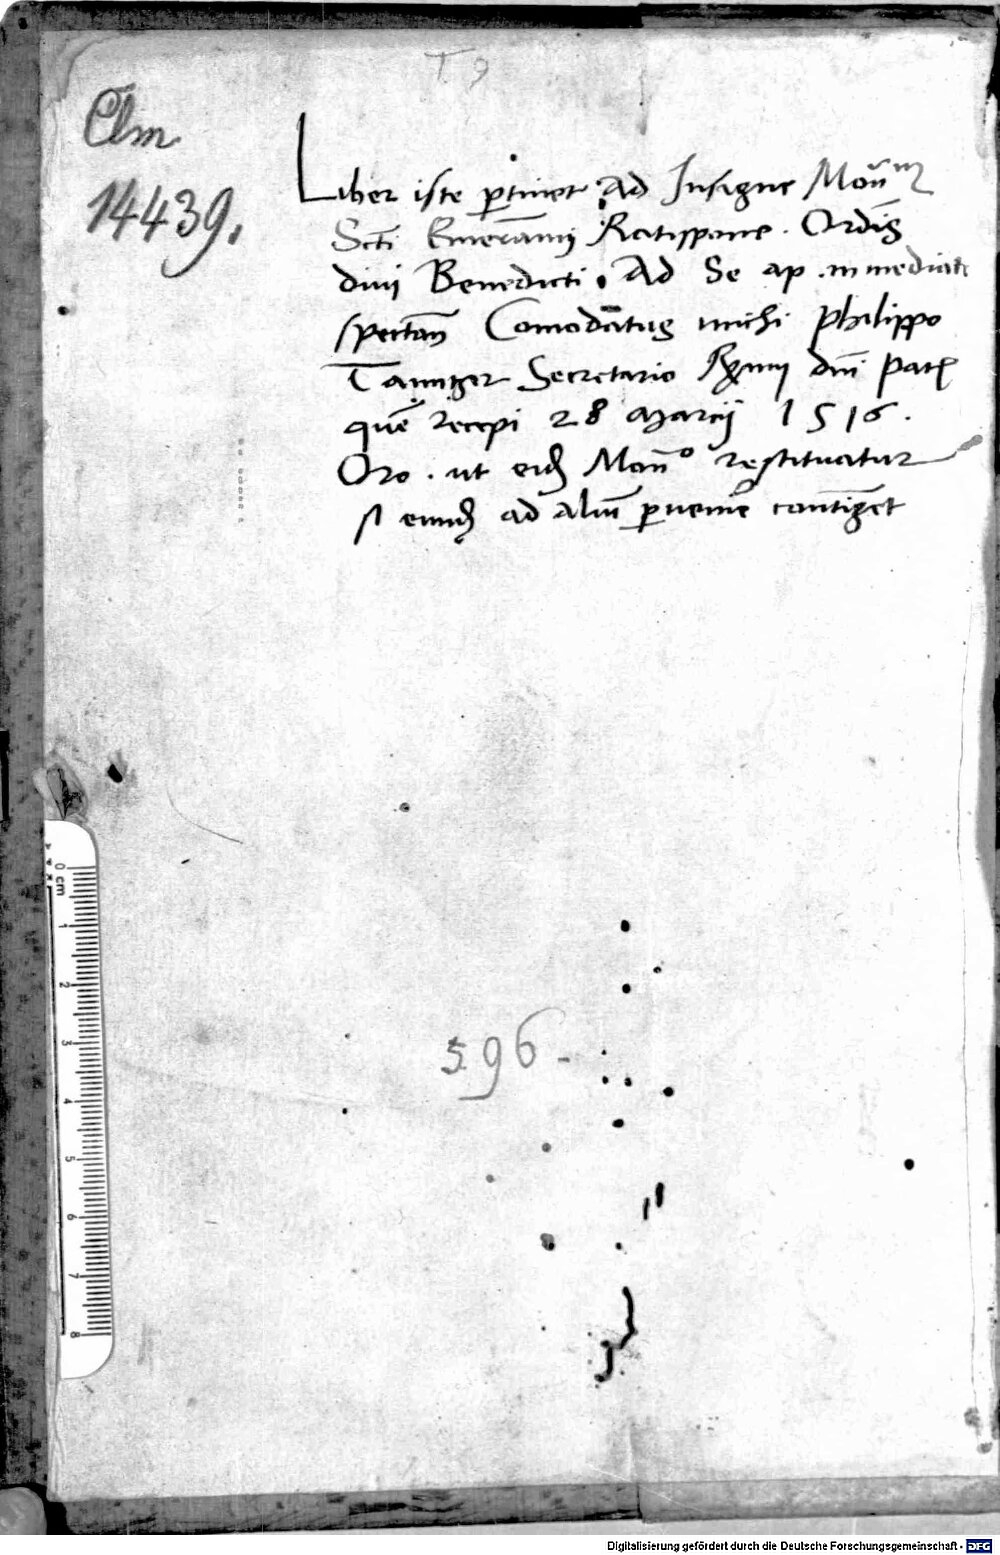 T 9
Clm
14439.
Liber iste ꝑtinet Ad Insigne Moñm
Scti Emerāmj Ratispone. Ordīs
divi Benedicti. Ad Se ap. immediate
spectan̄ Comodātus michi Philippo
Secretario dn̄i
quē recepi 28 Marcij 1516.
Oro. ut eid Mon̄o restituatur
si eund ad aliū ꝑvenire contīget
596-
0 cm
1
2
3
4
5
6
7
8
Digitalisierung gefördert durch die Deutsche Forschungsgemeinschaft - DFG